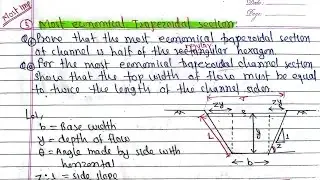 ⑤ Most economical Trapezoidal section
Q① Prove that the most economical trapezoidal section
of channel is half of the regular hexagon.
Q② For the most economical trapezoidal channel section
show that the top width of flow must be equal
to twice the length of the channel sides.
Sol,
b = Base width
y = depth of flow
θ = Angle made by side with
horizontal
z : 1 = side slope
zy
zy
L
y
1
z
b